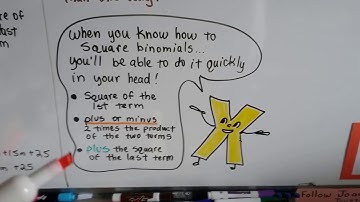 When you know how to
square binomials...
you'll be able to do it quickly
in your head!
• Square of the
1st term
• plus or minus
2 times the product
of the two terms
• plus the square
of the last term
are of
m
+15n+25
n +25
Follow